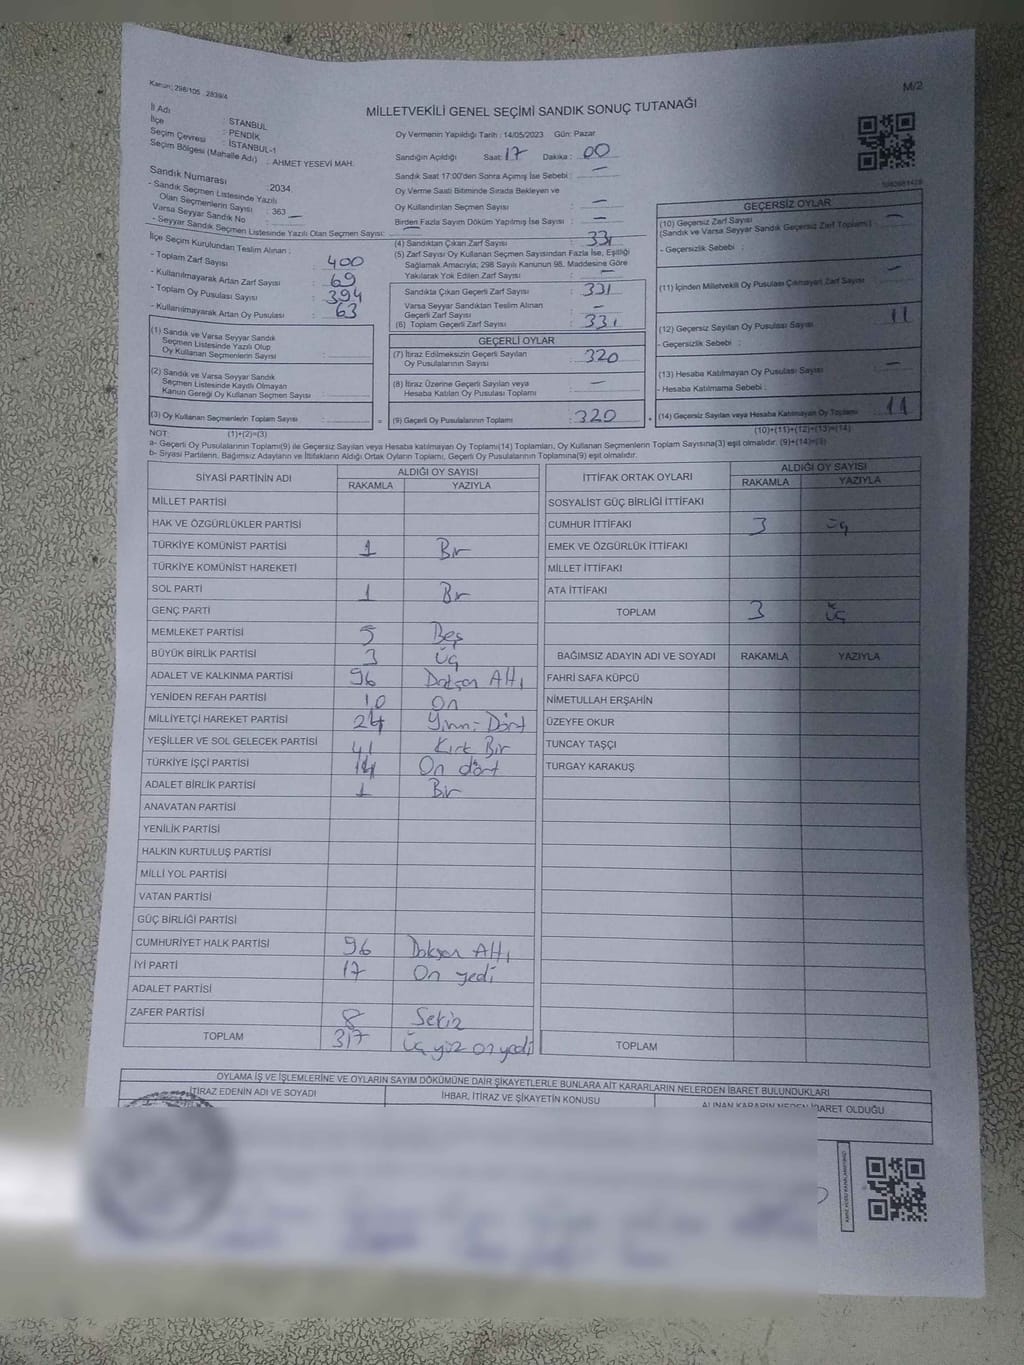 Kanun: 298/105 . 2839/4
M/2
MİLLETVEKİLİ GENEL SEÇİMİ SANDIK SONUÇ TUTANAĞI
İl Adı : STANBUL
İlçe : PENDİK
Seçim Çevresi : İSTANBUL-1
Seçim Bölgesi (Mahalle Adı) : AHMET YESEVİ MAH.
Sandık Numarası : 2034
- Sandık Seçmen Listesinde Yazılı
Olan Seçmenlerin Sayısı : 363
Varsa Seyyar Sandık No
- Seyyar Sandık Seçmen Listesinde Yazılı Olan Seçmen Sayısı:
İlçe Seçim Kurulundan Teslim Alınan :
- Toplam Zarf Sayısı : 400
- Kullanılmayarak Artan Zarf Sayısı : 69
- Toplam Oy Pusulası Sayısı : 394
- Kullanılmayarak Artan Oy Pusulası : 63
(1) Sandık ve Varsa Seyyar Sandık
Seçmen Listesinde Yazılı Olup
Oy Kullanan Seçmenlerin Sayısı :
(2) Sandık ve Varsa Seyyar Sandık
Seçmen Listesinde Kayıtlı Olmayan
Kanun Gereği Oy Kullanan Seçmen Sayısı :
(3) Oy Kullanan Seçmenlerin Toplam Sayısı :
(1)+(2)=(3)
Oy Vermenin Yapıldığı Tarih : 14/05/2023 Gün: Pazar
Sandığın Açıldığı Saat: 17 Dakika : 00
Sandık Saat 17:00'den Sonra Açımış İse Sebebi : —
Oy Verme Saati Bitiminde Sırada Bekleyen ve
Oy Kullandırılan Seçmen Sayısı : —
Birden Fazla Sayım Döküm Yapılmış İse Sayısı : —
(4) Sandıktan Çıkan Zarf Sayısı : 331
(5) Zarf Sayısı Oy Kullanan Seçmen Sayısından Fazla İse, Eşitliği
Sağlamak Amacıyla; 298 Sayılı Kanunun 98. Maddesine Göre
Yakılarak Yok Edilen Zarf Sayısı : —
Sandıkta Çıkan Geçerli Zarf Sayısı : 331
Varsa Seyyar Sandıktan Teslim Alınan
Geçerli Zarf Sayısı : —
(6) Toplam Geçerli Zarf Sayısı : 331
GEÇERLİ OYLAR
(7) İtiraz Edilmeksizin Geçerli Sayılan
Oy Pusulalarının Sayısı : 320
(8) İtiraz Üzerine Geçerli Sayılan veya
Hesaba Katılan Oy Pusulası Toplamı : —
= (9) Geçerli Oy Pusulalarının Toplamı : 320 +
GEÇERSİZ OYLAR
(10) Geçersiz Zarf Sayısı
(Sandık ve Varsa Seyyar Sandık Geçersiz Zarf Toplamı) : —
- Geçersizlik Sebebi :
(11) İçinden Milletvekili Oy Pusulası Çıkmayan Zarf Sayısı : —
(12) Geçersiz Sayılan Oy Pusulası Sayısı : 11
- Geçersizlik Sebebi :
(13) Hesaba Katılmayan Oy Pusulası Sayısı : —
- Hesaba Katılmama Sebebi :
(14) Geçersiz Sayılan veya Hesaba Katılmayan Oy Toplamı : 11
(10)+(11)+(12)+(13)=(14)
NOT:
a- Geçerli Oy Pusulalarının Toplamı(9) ile Geçersiz Sayılan veya Hesaba katılmayan Oy Toplamı(14) Toplamları, Oy Kullanan Seçmenlerin Toplam Sayısına(3) eşit olmalıdır. (9)+(14)=(3)
b- Siyasi Partilerin, Bağımsız Adayların ve İttifakların Aldığı Ortak Oyların Toplamı, Geçerli Oy Pusulalarının Toplamına(9) eşit olmalıdır.
SİYASİ PARTİNİN ADI ALDIĞI OY SAYISI
RAKAMLA YAZIYLA
MİLLET PARTİSİ
HAK VE ÖZGÜRLÜKLER PARTİSİ
TÜRKİYE KOMÜNİST PARTİSİ 1 Bir
TÜRKİYE KOMÜNİST HAREKETİ
SOL PARTİ 1 Bir
GENÇ PARTİ
MEMLEKET PARTİSİ 5 Beş
BÜYÜK BİRLİK PARTİSİ 3 üç
ADALET VE KALKINMA PARTİSİ 96 Doksan Altı
YENİDEN REFAH PARTİSİ 10 On
MİLLİYETÇİ HAREKET PARTİSİ 24 Yirmi Dört
YEŞİLLER VE SOL GELECEK PARTİSİ 41 Kırk Bir
TÜRKİYE İŞÇİ PARTİSİ 14 On dört
ADALET BİRLİK PARTİSİ 1 Bir
ANAVATAN PARTİSİ
YENİLİK PARTİSİ
HALKIN KURTULUŞ PARTİSİ
MİLLİ YOL PARTİSİ
VATAN PARTİSİ
GÜÇ BİRLİĞİ PARTİSİ
CUMHURİYET HALK PARTİSİ 96 Doksan Altı
İYİ PARTİ 17 On yedi
ADALET PARTİSİ
ZAFER PARTİSİ 8 Sekiz
TOPLAM 317 üç yüz on yedi
İTTİFAK ORTAK OYLARI ALDIĞI OY SAYISI
RAKAMLA YAZIYLA
SOSYALİST GÜÇ BİRLİĞİ İTTİFAKI
CUMHUR İTTİFAKI 3 üç
EMEK VE ÖZGÜRLÜK İTTİFAKI
MİLLET İTTİFAKI
ATA İTTİFAKI
TOPLAM 3 üç
BAĞIMSIZ ADAYIN ADI VE SOYADI RAKAMLA YAZIYLA
FAHRİ SAFA KÜPCÜ
NİMETULLAH ERŞAHİN
ÜZEYFE OKUR
TUNCAY TAŞÇI
TURGAY KARAKUŞ
TOPLAM
OYLAMA İŞ VE İŞLEMLERİNE VE OYLARIN SAYIM DÖKÜMÜNE DAİR ŞİKAYETLERLE BUNLARA AİT KARARLARIN NELERDEN İBARET BULUNDUKLARI
İTİRAZ EDENİN ADI VE SOYADI İHBAR, İTİRAZ VE ŞİKAYETİN KONUSU ALINAN KARARIN NEDEN İBARET OLDUĞU